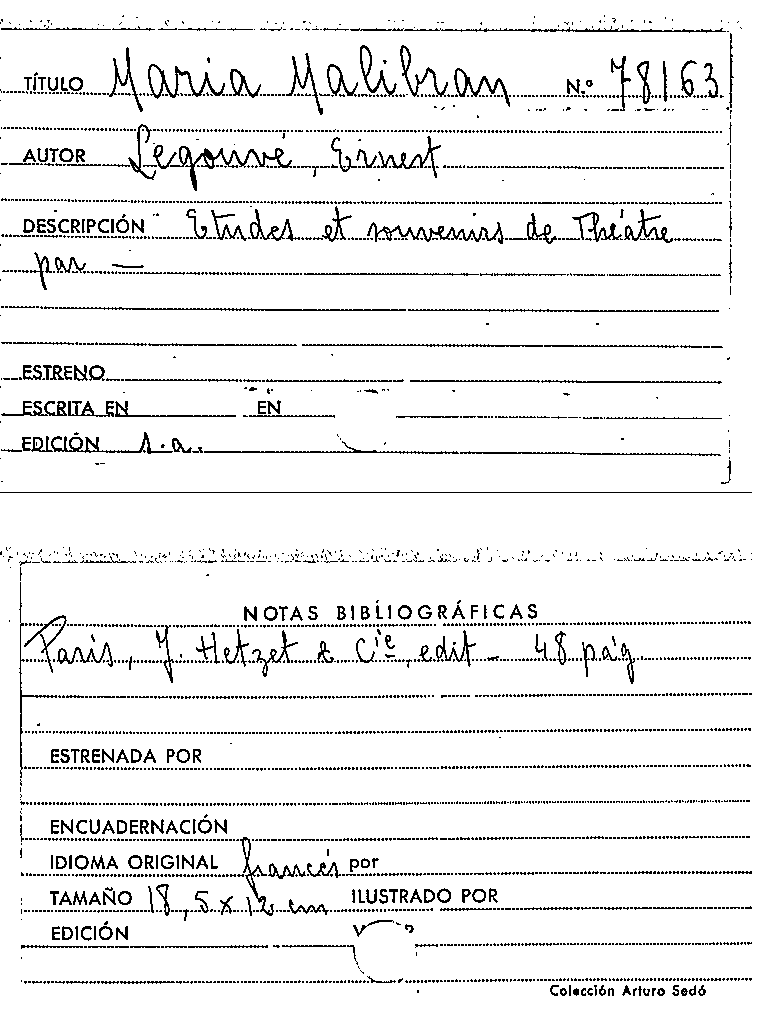 TÍTULO Maria Malibran N.º 78163
AUTOR Legouvé, Ernest
DESCRIPCIÓN Etudes et souvenirs de Théâtre
par —
ESTRENO
ESCRITA EN EN
EDICIÓN s.a.
NOTAS BIBLIOGRÁFICAS
Paris, J. Hetzet & Cie, edit — 48 pág.
ESTRENADA POR
ENCUADERNACIÓN
IDIOMA ORIGINAL francés por
TAMAÑO 18,5 x 12 cm ILUSTRADO POR
EDICIÓN
Colección Arturo Sedó